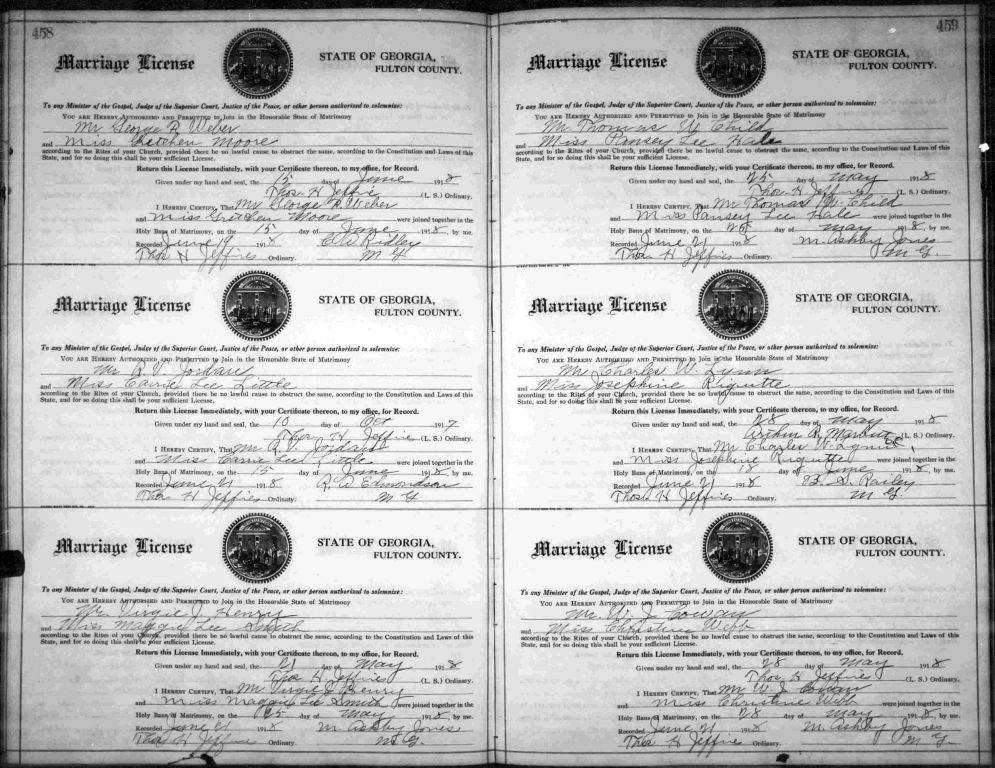 458
Marriage License
STATE OF GEORGIA,
FULTON COUNTY.
To any Minister of the Gospel, Judge of the Superior Court, Justice of the Peace, or other person authorized to solemnize:
YOU ARE HEREBY AUTHORIZED AND PERMITTED to Join in the Honorable State of Matrimony
Mr George R Weber
and Miss Gretchen Moore
according to the Rites of your Church, provided there be no lawful cause to obstruct the same, according to the Constitution and Laws of this
State, and for so doing this shall be your sufficient License.
Return this License Immediately, with your Certificate thereon, to my office, for Record.
Given under my hand and seal, the 15 day of June 1918
Thos H Jeffries (L. S.) Ordinary.
I HEREBY CERTIFY, That Mr George R Weber
and Miss Gretchen Moore were joined together in the
Holy Bans of Matrimony, on the 15 day of June 1918, by me.
Recorded June 19 1918 C A Ridley
Thos H Jeffries Ordinary. M G
Marriage License
STATE OF GEORGIA,
FULTON COUNTY.
To any Minister of the Gospel, Judge of the Superior Court, Justice of the Peace, or other person authorized to solemnize:
YOU ARE HEREBY AUTHORIZED AND PERMITTED to Join in the Honorable State of Matrimony
Mr R. V. Jordan
and Miss Carrie Lee Little
according to the Rites of your Church, provided there be no lawful cause to obstruct the same, according to the Constitution and Laws of this
State, and for so doing this shall be your sufficient License.
Return this License Immediately, with your Certificate thereon, to my office, for Record.
Given under my hand and seal, the 10 day of Oct 1917
Thos H Jeffries (L. S.) Ordinary.
I HEREBY CERTIFY, That Mr R. V. Jordan
and Miss Carrie Lee Little were joined together in the
Holy Bans of Matrimony, on the 15 day of June 1918, by me.
Recorded June 21 1918 R. A Edmondson
Thos H Jeffries Ordinary. M G
Marriage License
STATE OF GEORGIA,
FULTON COUNTY.
To any Minister of the Gospel, Judge of the Superior Court, Justice of the Peace, or other person authorized to solemnize:
YOU ARE HEREBY AUTHORIZED AND PERMITTED to Join in the Honorable State of Matrimony
Mr Virgie J. Henry
and Miss Maggie Lee Smith
according to the Rites of your Church, provided there be no lawful cause to obstruct the same, according to the Constitution and Laws of this
State, and for so doing this shall be your sufficient License.
Return this License Immediately, with your Certificate thereon, to my office, for Record.
Given under my hand and seal, the 21 day of May 1918
Thos H Jeffries (L. S.) Ordinary.
I HEREBY CERTIFY, That Mr Virgie J Henry
and Miss Maggie Lee Smith were joined together in the
Holy Bans of Matrimony, on the 25 day of May 1918, by me.
Recorded June 21 1918 M. Ashby Jones
Thos H Jeffries Ordinary. M G.
459
Marriage License
STATE OF GEORGIA,
FULTON COUNTY.
To any Minister of the Gospel, Judge of the Superior Court, Justice of the Peace, or other person authorized to solemnize:
YOU ARE HEREBY AUTHORIZED AND PERMITTED to Join in the Honorable State of Matrimony
Mr Thomas W. Child
and Miss Pansey Lee Hale
according to the Rites of your Church, provided there be no lawful cause to obstruct the same, according to the Constitution and Laws of this
State, and for so doing this shall be your sufficient License.
Return this License Immediately, with your Certificate thereon, to my office, for Record.
Given under my hand and seal, the 25 day of May 1918
Thos H Jeffries (L. S.) Ordinary.
I HEREBY CERTIFY, That Mr Thomas W. Child
and Miss Pansey Lee Hale were joined together in the
Holy Bans of Matrimony, on the 25 day of May 1918, by me.
Recorded June 21 1918 M. Ashby Jones
Thos H Jeffries Ordinary. M G.
Marriage License
STATE OF GEORGIA,
FULTON COUNTY.
To any Minister of the Gospel, Judge of the Superior Court, Justice of the Peace, or other person authorized to solemnize:
YOU ARE HEREBY AUTHORIZED AND PERMITTED to Join in the Honorable State of Matrimony
Mr Charles W. Lynn
and Miss Josephine Riquitte
according to the Rites of your Church, provided there be no lawful cause to obstruct the same, according to the Constitution and Laws of this
State, and for so doing this shall be your sufficient License.
Return this License Immediately, with your Certificate thereon, to my office, for Record.
Given under my hand and seal, the 28 day of May 1918
Arthur R. Marbut (L. S.) Ordinary.
I HEREBY CERTIFY, That Mr Charles W.
and Miss Josephine Riquitte were joined together in the
Holy Bans of Matrimony, on the 18 day of June 1918, by me.
Recorded June 21 1918 B. D. Railey
Thos H Jeffries Ordinary. M G.
Marriage License
STATE OF GEORGIA,
FULTON COUNTY.
To any Minister of the Gospel, Judge of the Superior Court, Justice of the Peace, or other person authorized to solemnize:
YOU ARE HEREBY AUTHORIZED AND PERMITTED to Join in the Honorable State of Matrimony
Mr. W. J. Cowan
and Miss Christine Webb
according to the Rites of your Church, provided there be no lawful cause to obstruct the same, according to the Constitution and Laws of this
State, and for so doing this shall be your sufficient License.
Return this License Immediately, with your Certificate thereon, to my office, for Record.
Given under my hand and seal, the 28 day of May 1918
Thos. H Jeffries (L. S.) Ordinary.
I HEREBY CERTIFY, That Mr W. J. Cowan
and Miss Christine Webb were joined together in the
Holy Bans of Matrimony, on the 28 day of May 1918, by me.
Recorded June 21 1918 M. Ashby Jones
Thos H Jeffries Ordinary. M G.